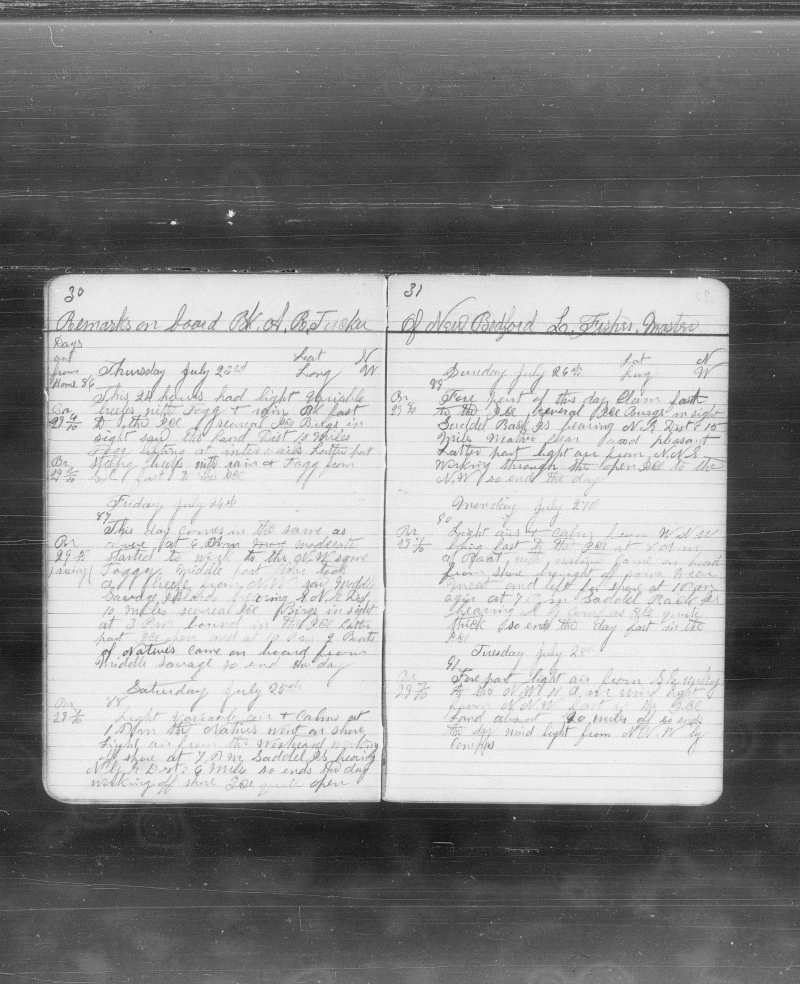 30
Remarks on board Bk. A. R. Tucker
Days
out
from Lat N
Home 86 Thursday July 23rd Long W
This 24 hours had light Variable
breezes with Fogg & rain Bk fast
to the ICE several ICE Birgs in
sight saw the land Dist 15 Miles
Fogg lifting at intervails Latter part
Br strong breeze with rain & Fogg from
fast to the ICE
Friday July 24th
87
This day comes in the same as
Br at 6 moderate
29 started to work to the N W some
Foggy Middle part
a breeze from N. W. saw Middle
Savage Islands bearing N Dist
10 miles several ICE Birgs in sight
at 3 P.m bound in the ICE Latter
part ICE open and at 10 P.m 2 Boats
of Natives came on board from
Middle Savage so end the day
Saturday July 25th
Br 88
29 Light Variable air & Calms at
1 P.m the Natives went on shore
Light air from the Westward working
off shore at 7 P.M Saddel Is bearing
Dist. 6 Miles so ends the day
working off shore ICE quite open
31
Of New Bedford L. Fisher. Master
Lat N
Sunday July 26th Long W
89
Br Fore part of this day Claim fast
29 to the ICE several ICE Burgs in sight
Saddel Back Is bearing Dist 15
Miles Weather Clear and pleasant
Latter part light air from N.N.E
Working through the open ICE to the
N.W. so end the day
Monday July 27th
90
Br Light airs & Calms from W N W
29 lying fast to the ICE at A.m
a Boat with natives came on board
from shore brought of some Bear
meat and left for shore at 10 P.m
again at 7 P.m Saddel Back Is
bearing ICE quite
thick so ends the day fast in the
ICE
Tuesday July 28th
91
Br Fore part light air from S.E working
29 to the N.W. A.m wind light
from N N W fast in the ICE
Land about 20 miles of so ends
the day wind light from by
Compas